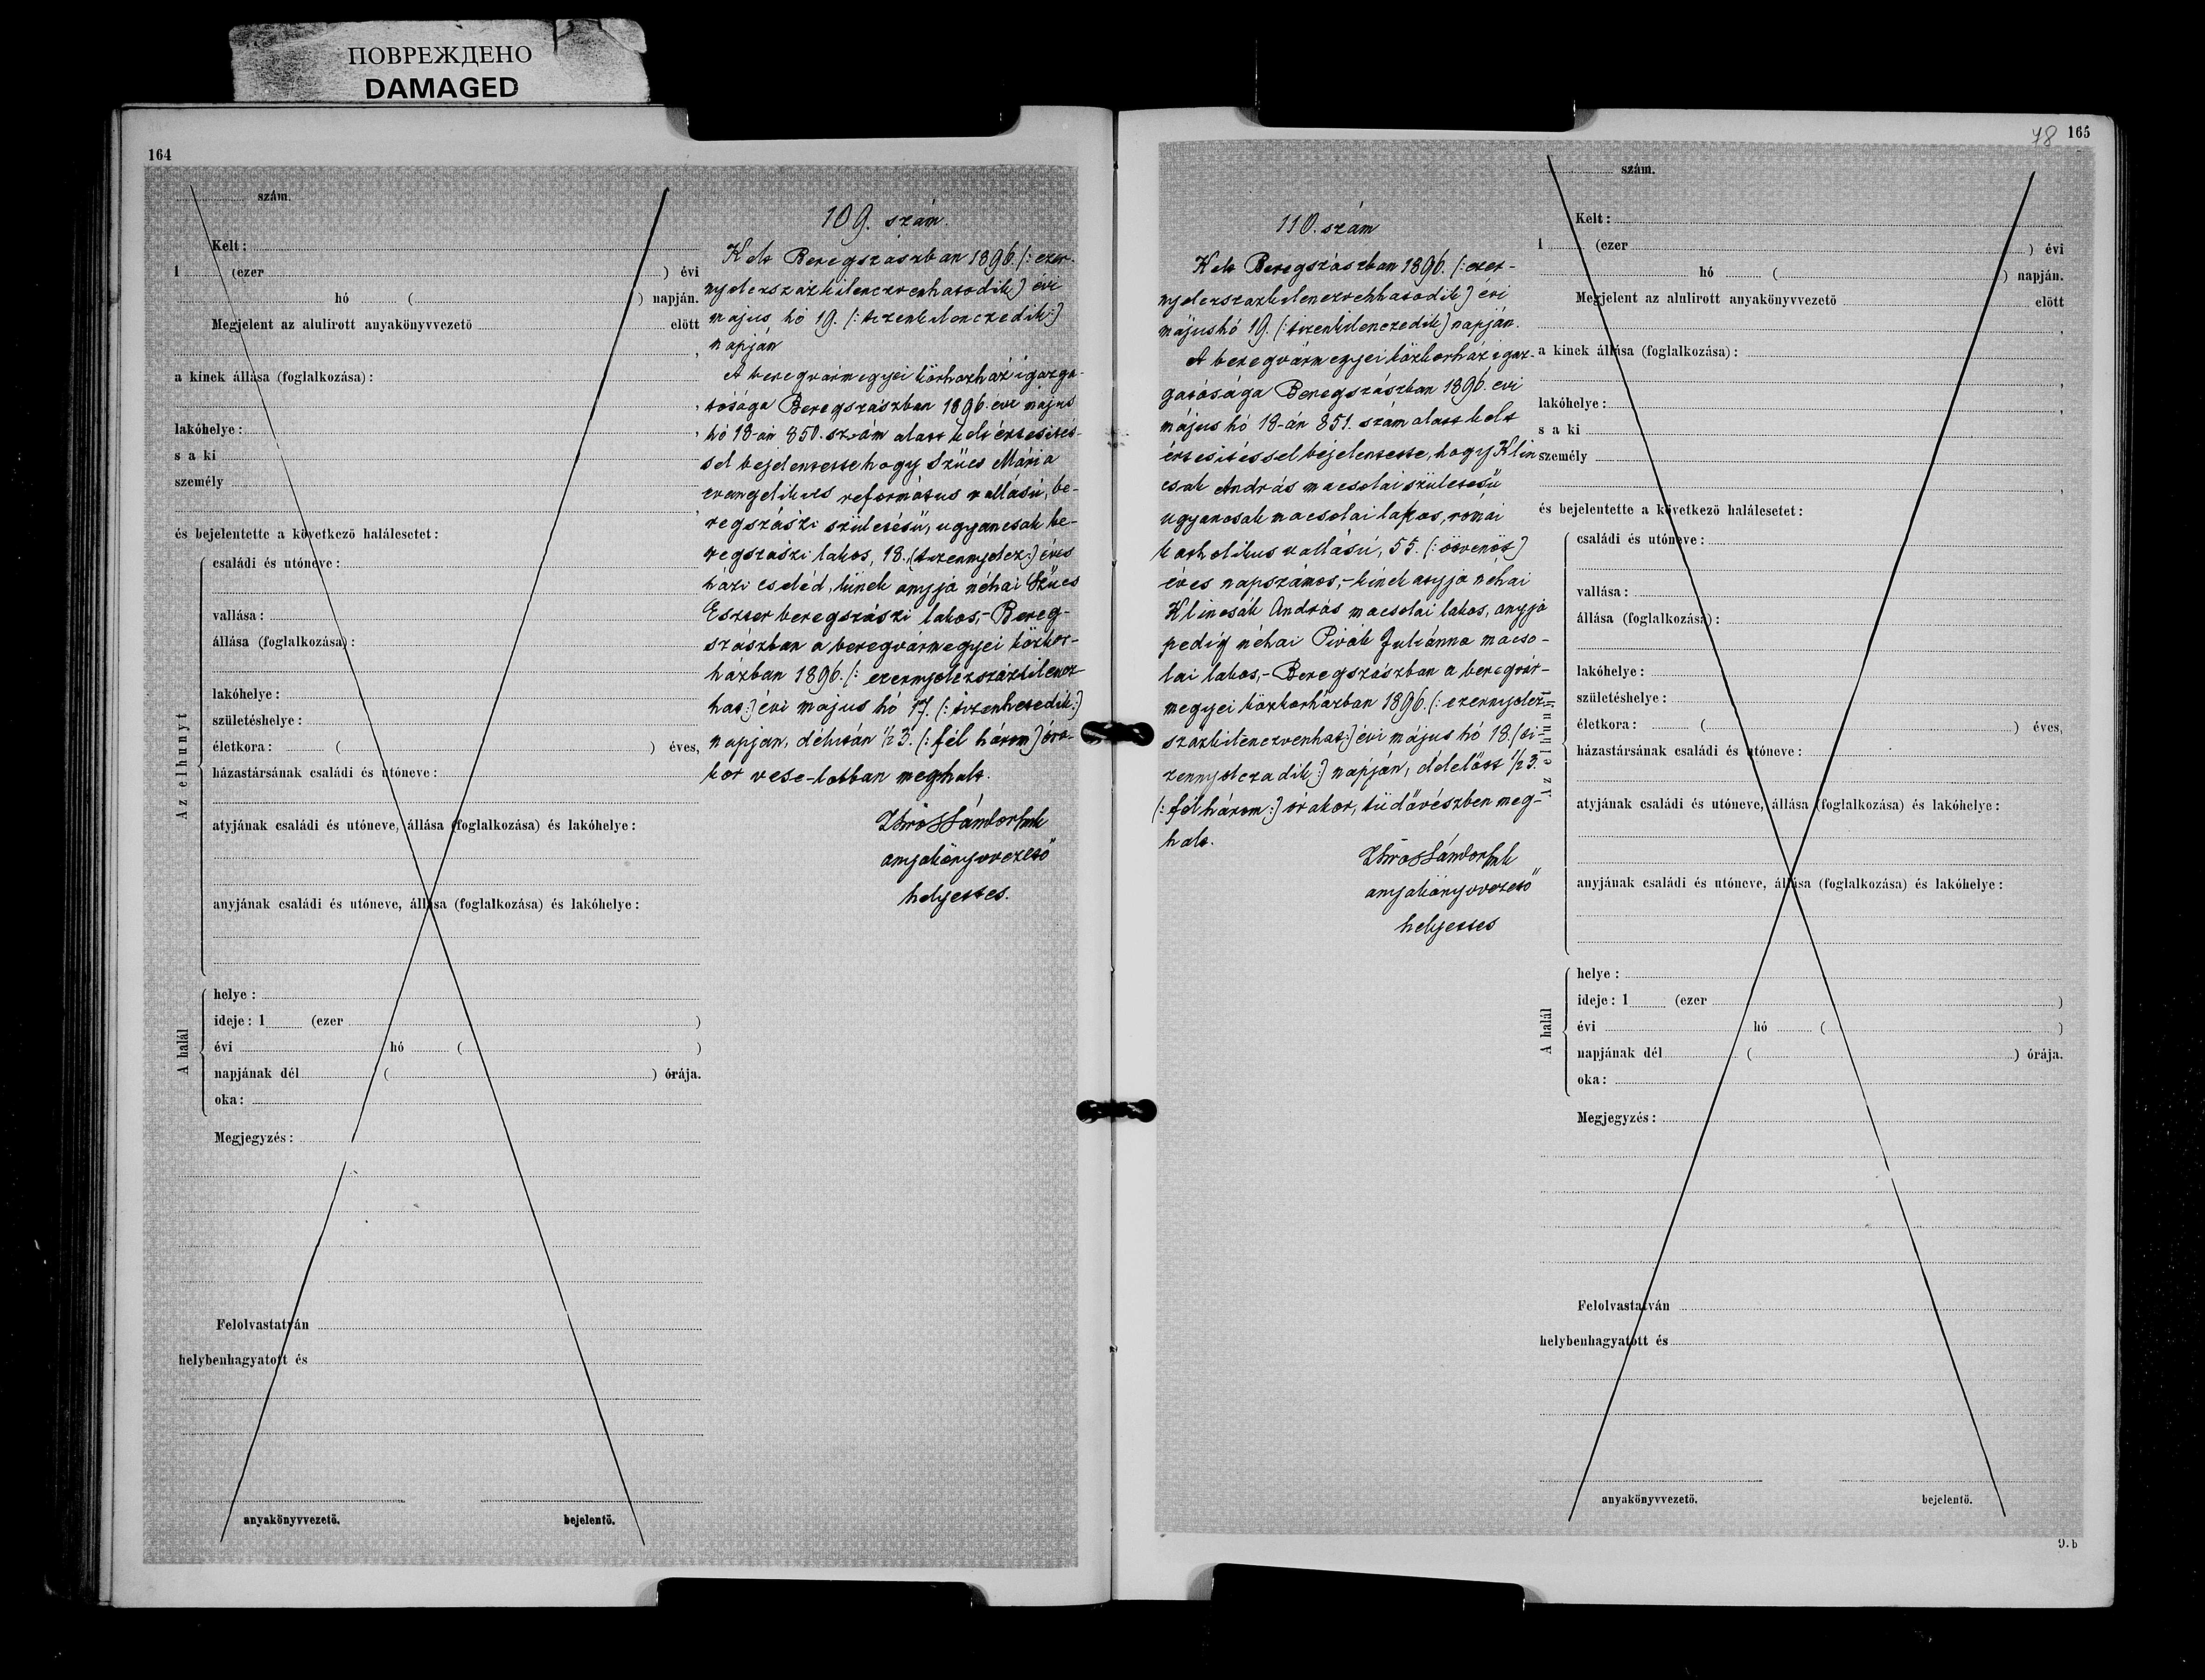 ПОВРЕЖДЕНО
DAMAGED
164
szám.
Kelt:
1 (ezer ) évi
hó ( ) napján.
Megjelent az alulirott anyakönyvvezető előtt
,
a kinek állása (foglalkozása):
,
lakóhelye: ,
s a ki
személy
,
és bejelentette a következő halálesetet:
Az elhunyt
családi és utóneve:
vallása:
állása (foglalkozása):
lakóhelye:
születéshelye:
életkora: ( ) éves,
házastársának családi és utóneve:
atyjának családi és utóneve, állása (foglalkozása) és lakóhelye:
anyjának családi és utóneve, állása (foglalkozása) és lakóhelye:
A halál
helye:
ideje: 1 (ezer )
évi hó ( )
napjának dél ( ) órája.
oka:
Megjegyzés:
Felolvastatván
helybenhagyatott és
anyakönyvvezető. bejelentő.
109. szám.
Kelt Beregszászban 1896. (: ezer-
nyolczszázkilenczvenhatodik) évi
május hó 19. (: tizenkilenczedik:)
napján
A beregvármegyei közkorház igazga-
tósága Beregszászban 1896. évi május
hó 18-án 850. szám alatt kelt értesités-
sel bejelentette hogy Szűcs Mária
evangelikus református vallású, be-
regszászi születésű, ugyancsak be-
regszászi lakos, 18. (tizennyolcz:) éves
házi cseléd, kinek anyja néhai Szűcs
Eszter beregszászi lakos,- Bereg-
szászban a beregvármegyei közkor-
házban 1896. (: ezernyolczszázkilencz-
hat:) évi május hó 17. (: tizenhetedik:)
napján, délután ½3. (: fél három) óra-
kor vese-lobban meghalt.
anyakönyvvezető
helyettes.
78 165
110. szám
Kelt Beregszászban 1896. (: ezer-
nyolczszázkilenczvenhatodik) évi
május hó 19. (: tizenkilenczedik) napján.
A beregvármegyei közkorház igaz-
gatósága Beregszászban 1896. évi
május hó 18-án 851. szám alatt kelt
értesitéssel bejelentette, hogy Klin
csak András macsolai születésű
ugyancsak macsolai lakos, római
katholikus vallású, 55. (: ötvenöt)
éves napszámos,- kinek atyja néhai
Klincsák András macsolai lakos, anyja
pedig néhai Pivák Juliánna macso-
lai lakos,- Beregszászban a beregvár-
megyei közkorházban 1896. (: ezernyolcz=
százkilenczvenhat:) évi május hó 18. (ti-
zennyolczadik:) napján, délelőtt ½3.
(: fél három:) órakor, tüdővészben meg-
halt.
anyakönyvvezető
helyettes
szám.
Kelt:
1 (ezer ) évi
hó ( ) napján.
Megjelent az alulirott anyakönyvvezető előtt
,
a kinek állása (foglalkozása):
,
lakóhelye: ,
s a ki
személy
,
és bejelentette a következő halálesetet:
Az elhunyt
családi és utóneve:
vallása:
állása (foglalkozása):
lakóhelye:
születéshelye:
életkora: ( ) éves,
házastársának családi és utóneve:
atyjának családi és utóneve, állása (foglalkozása) és lakóhelye:
anyjának családi és utóneve, állása (foglalkozása) és lakóhelye:
A halál
helye:
ideje: 1 (ezer )
évi hó ( )
napjának dél ( ) órája.
oka:
Megjegyzés:
Felolvastatván
helybenhagyatott és
anyakönyvvezető. bejelentő.
9.b